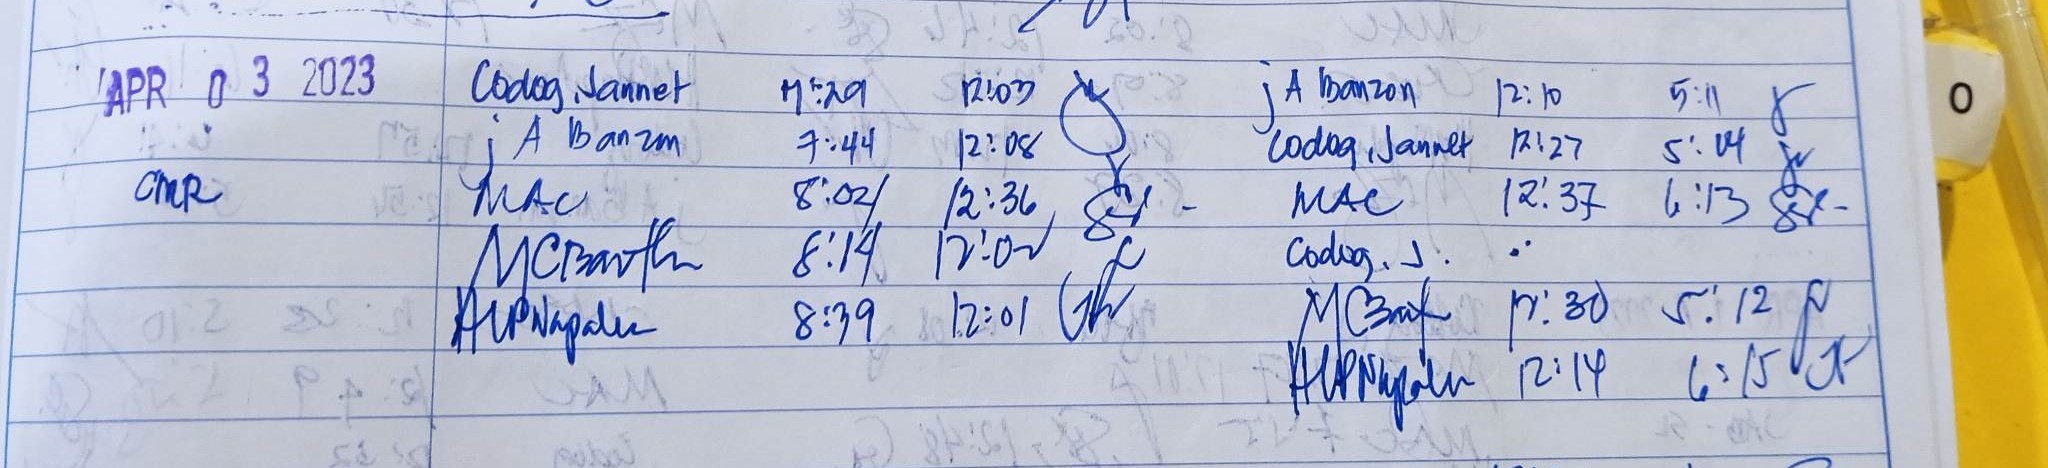 APR 03 2023 Codog, Jannet 7:29 12:03 j A Banzon 12:10 5:11
j A Banzon 7:44 12:08 Codog, Jannet 12:27 5:04
CMR MAC 8:02 12:36 MAC 12:37 6:13
8:14 12:02 Codog. J.
8:39 12:01 12:30 5:12
12:14 6:15
O